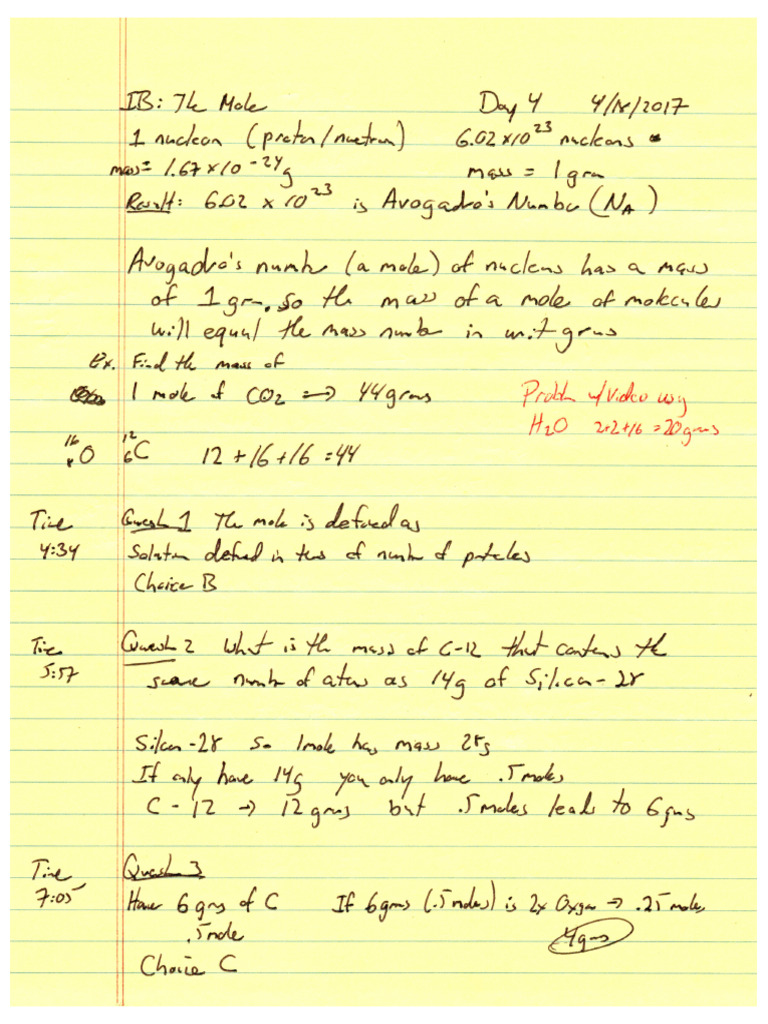 IB: The Mole Day 4 4/18/2017
1 nucleon (proton/neutron) 6.02 x 10^23 nucleons
mass = 1.67 x 10^-24 g mass = 1 gram
Result: 6.02 x 10^23 is Avogadro's Number (N_A)
Avogadro's number (a mole) of nucleons has a mass
of 1 gram, so the mass of a mole of molecules
will equal the mass number in unit grams
Ex. Find the mass of
1 mole of CO2 => 44 grams
Problem w/ video using
H2O 2+2+16 = 20 grams
16 8 O 12 6 C 12 + 16 + 16 = 44
Time Question 1 The mole is defined as
4:34 Solution defined in terms of number of particles
Choice B
Time Question 2 What is the mass of C-12 that contains the
5:57 same number of atoms as 14g of Silicon-28
Silicon-28 so 1 mole has mass 28g
If only have 14g you only have .5 moles
C-12 → 12 grams but .5 moles leads to 6 gms
Time Question 3
7:05 Have 6 gms of C If 6 gms (.5 moles) is 2x Oxygen → .25 moles
.5 mole 4 gms
Choice C